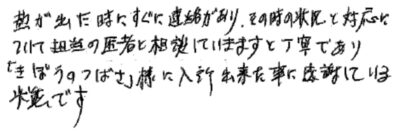 熱が出た時にすぐに連絡があり、その時の状況と対応に
ついて担当の医者と相談していきますと丁寧であり
「きぼうのつばさ」様に入所出来た事に感謝している
次第です